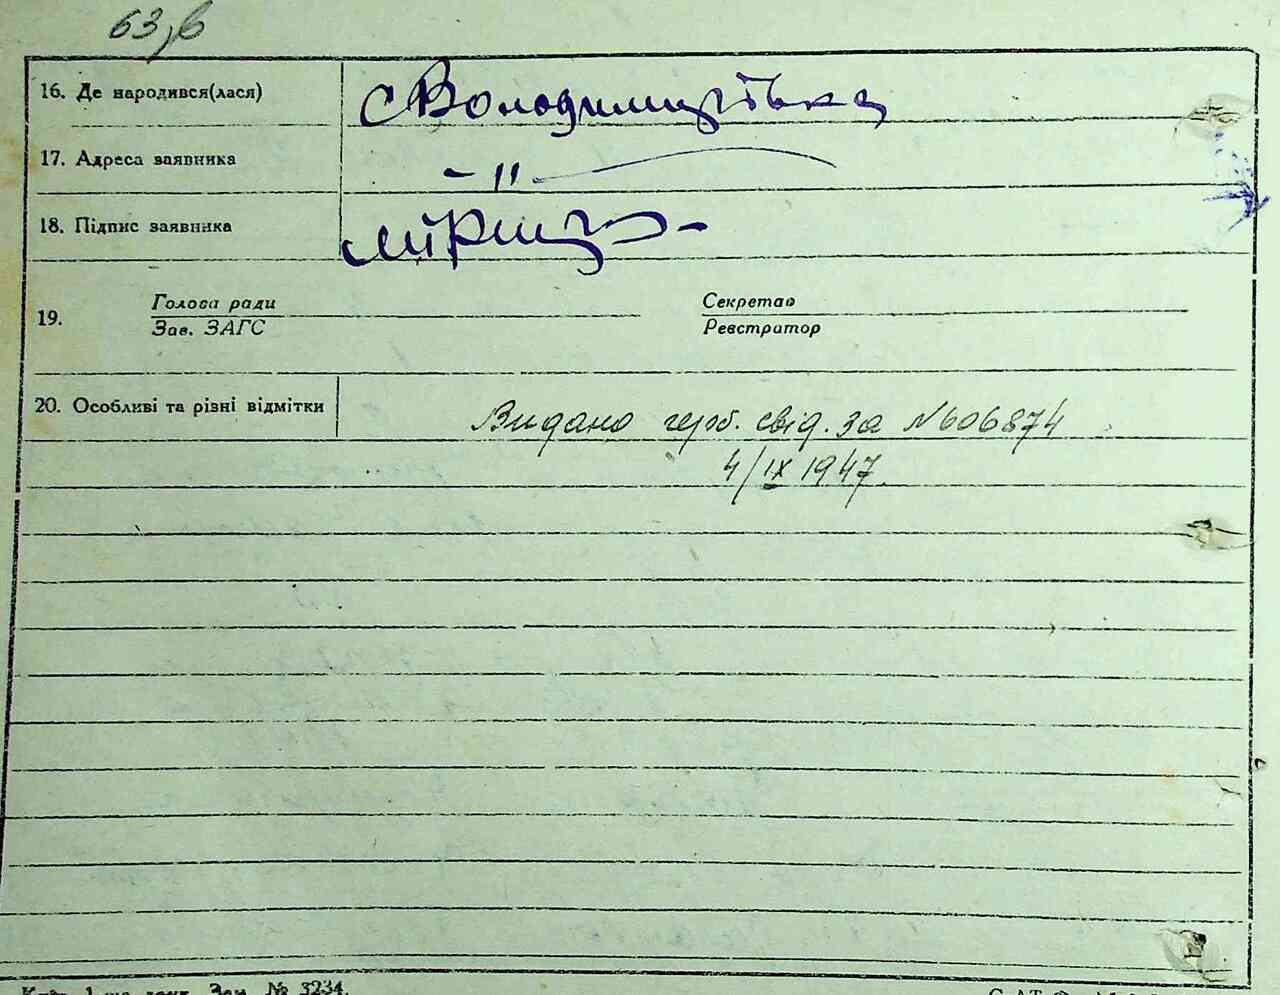 63, в
16. Де народився(лася) с Володимирівка
17. Адреса заявника - 11 -
18. Підпис заявника
19. Голова ради Секретар
Зав. ЗАГС Реєстратор
20. Особливі та різні відмітки Видано герб. свід. за №606874
4/IX 1947
Зам. № 3234.